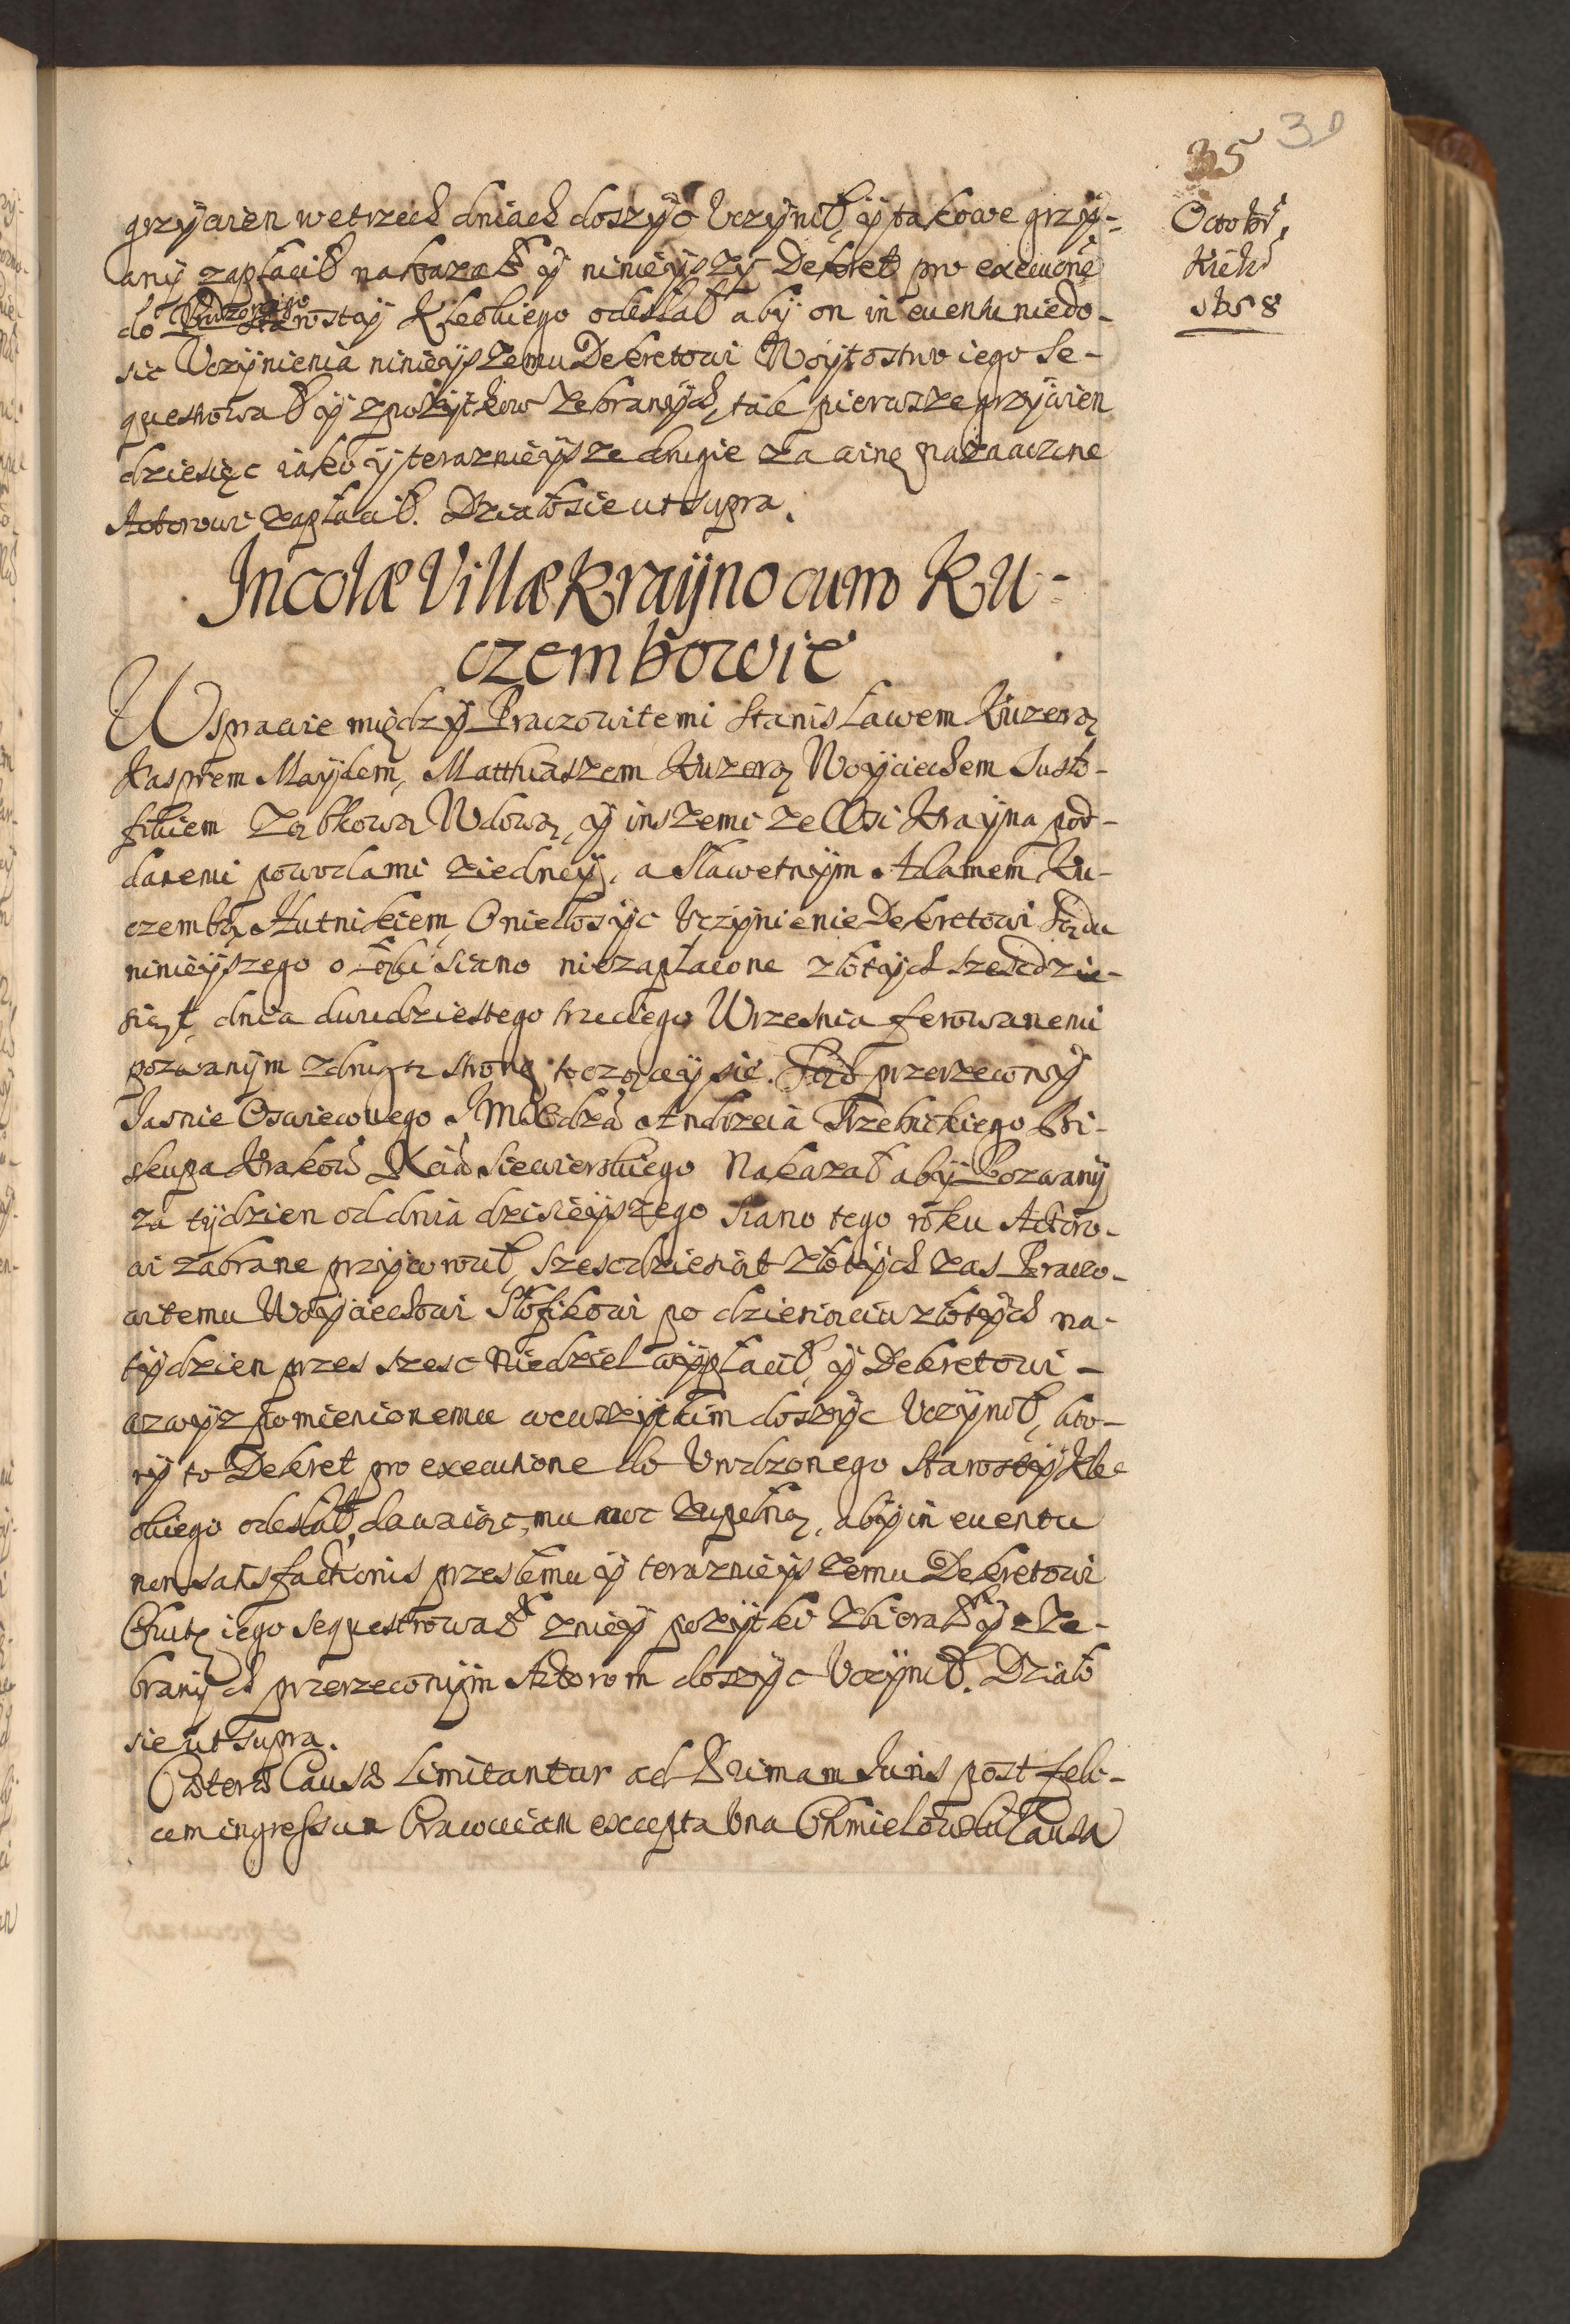 35 30
Octobr.
Kielc.
1658
grzywien wetrzech dniach doszyć Uczynił, y takowe grzy-
wny zapłacił nakazał y ninieyszy Dekret pro executione
do Urodzonego Starosty Kieleckiego odesłał aby on in euentu niedo-
sic Uczynienia ninieyszemu Dekretowi Woytostwo iego Se-
questrował y zpożytkow zebranych, tak pierwsze grzywien
dziesięc iako y teraznieysze drugie za winę naznaczone
Actorowi zapłacił. Działo sie ut supra.
Incolæ Villæ Krayno cum Ku-
czembowie
W sprawie między Pracowitemi Stanisławem Kuzerą
Kasprem Maydem, Matthiaszem Kuzerą Woyciechem Susło-
fikiem Ząbkową Wdową, y inszemi ze Wsi Krayna pod-
danemi powodami ziedney, a Sławetnym Adamem Ku-
czembą Kutnikiem, O niedosyc Uczynienie Dekretowi Sądu
ninieyszego o łąki siano niezapłacone złotych szescdzie-
siąt, dnia dwudziestego trzeciego Wrzesnia ferowanemi
pozwanym zdrugą stroną toczącey sie. Sąd przerzeczony
Jasnie Oswieconego JMci Xdza Andrzeia Trzebickiego Bi-
skupa Krakow Xcia Siewierskiego Nakazał aby Pozwany
za tydzien od dnia dzisieyszego siano tego roku Actoro-
wi zabrane przywrocił, szescdziesiąt złotych zas Praco-
witemu Woyciechowi Słofikowi po dziesiąciu złotych na-
tydzien przes szesc Niedziel wypłacił, y Dekretowi -
wzwyz pomienionemu wewszytkim doszyc Uczynił, kto-
ry to Dekret pro executione do Urodzonego Starosty Kiele
ckiego odesłał, dawaiąc mu moc zupełną, aby in euentu
non satisfactionis przeszłemu y teraznieyszemu Dekretowi
Chutę iego sequestrował zniey pozytki zbierał y ze-
branych przerzeczonym Actorom doszyc Uczynił. Działo
sie ut supra.
Cæteræ Causæ limitantur ad Primam Juris post feli-
cem ingressum Cracouiam excepta una Chmielowski Causa